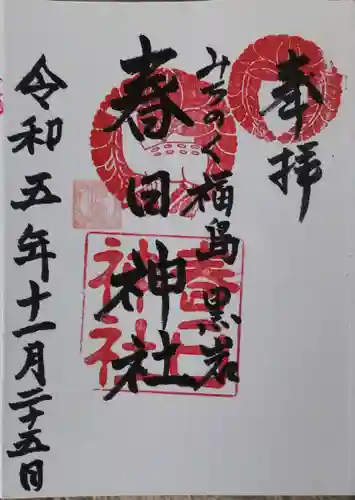 奉拝
みちのく福島黒岩
春日神社
春日神社
令和五年十一月二十五日